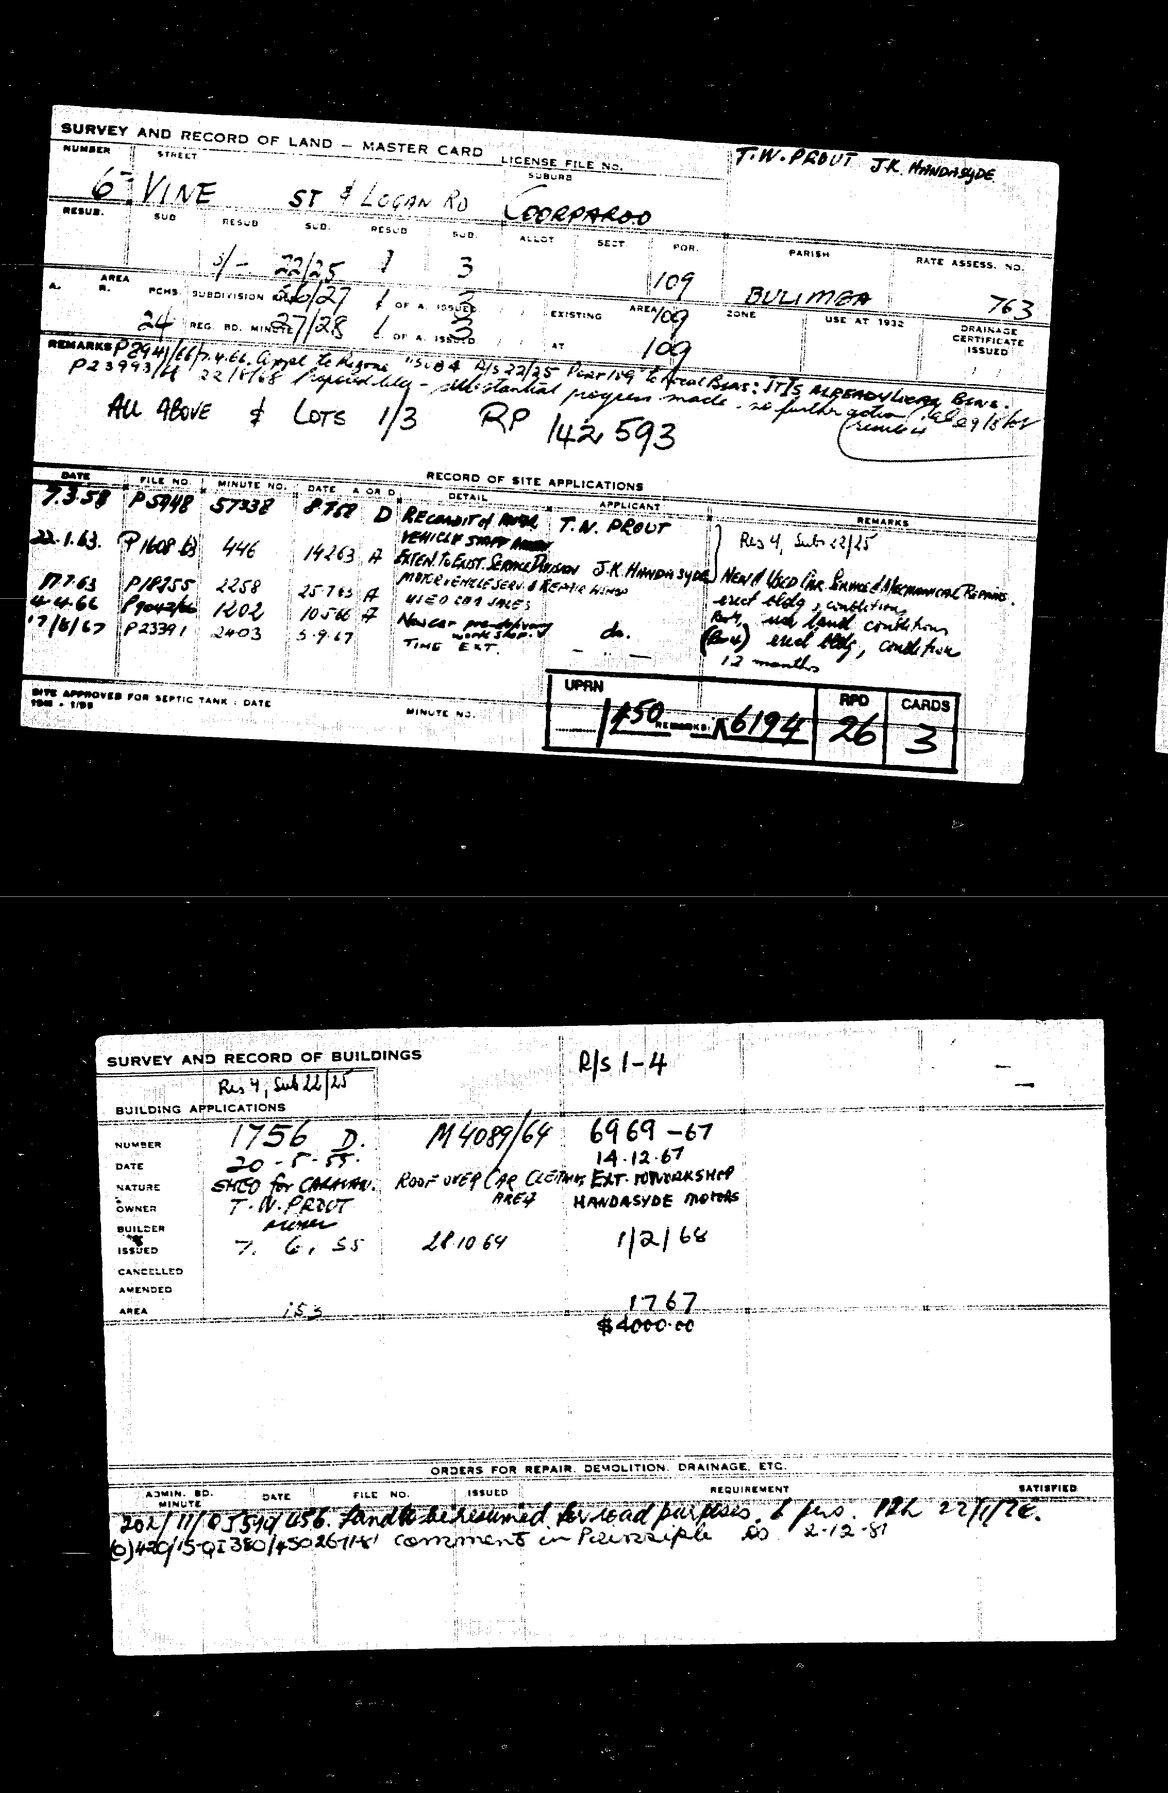 SURVEY AND RECORD OF LAND — MASTER CARD
LICENSE FILE NO.
T.W. PROUT J.K. HANDASYDE
NUMBER STREET SUBURB
6 VINE ST & LOGAN RD COORPAROO
RESUB. SUB RESUB SUB. RESUB SUB. ALLOT SECT. POR. PARISH RATE ASSESS. NO.
3/- 22/25 1 3 109 BULIMBA 763
A. AREA R. PCHS. SUBDIVISION 26/27 1 OF A. ISSUED 3 EXISTING AREA 109 ZONE USE AT 1932 DRAINAGE CERTIFICATE ISSUED
24 REG. BD. MINUTE 27/28 1 OF A. ISSUED 3 AT 109
REMARKS P2941/66/7.4.66. Appl to Rezone SUB 4 R/S 22/25 Port 109 to Local Bisns: IT IS ALREADY LOCAL BISNS.
P23993/H 22/8/68 Proposed bldg - substantial progress made - no further action 29/8/68
ALL ABOVE & LOTS 1/3 RP 142593
RECORD OF SITE APPLICATIONS
DATE FILE NO. MINUTE NO. DATE A OR D DETAIL APPLICANT REMARKS
7.3.58 P5948 57338 8.7.58 D T.W. PROUT Res 4, Sub 22/25
VEHICLE
22.1.63. P1608 63 446 14263 A EXTEN. TO EXIST. SERVICE J.K. HANDASYDE NEW & USED CAR SERVICE & MECHANICAL REPAIRS.
MOTOR VEHICLE SERV. & REPAIR
17.7.63 P18255 2258 25.7.63 A USED CAR SALES erect bldg, conditions
4.4.66 P9042/66 1202 10566 A New car pre-delivery workshop. do. use land conditions
17/8/67 P23391 2403 5.9.67 TIME EXT. — — — (Res 4) erect bldg, condition
12 months
SITE APPROVED FOR SEPTIC TANK: DATE MINUTE NO. REMARKS:
UPRN RPD CARDS
450 6194 26 3
SURVEY AND RECORD OF BUILDINGS
R/S 1-4
Res 4, Sub 22/25
BUILDING APPLICATIONS
NUMBER 1756 D. M4089/64 6969-67
DATE 20-5-55. 14.12.67
NATURE SHED for CARAVAN. ROOF OVER CAR CLEANING AREA EXT. TO WORKSHOP
OWNER T.W. PROUT HANDASYDE MOTORS
BUILDER
ISSUED 7. 6. 55 28.10.64 1/2/68
CANCELLED
AMENDED
AREA 153 1767
$4000.00
ORDERS FOR REPAIR, DEMOLITION, DRAINAGE, ETC.
ADMIN. BD. MINUTE DATE FILE NO. ISSUED REQUIREMENT SATISFIED
Land to be resumed for road purposes.
comment in Principle 2-12-81